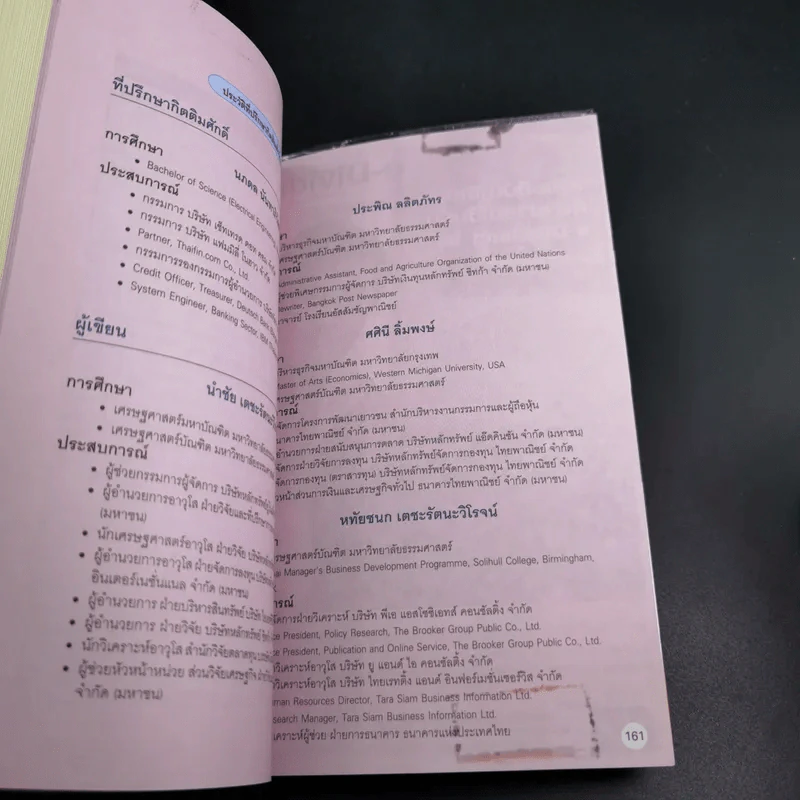 ประวัติที่ปรึกษา
ที่ปรึกษากิตติมศักดิ์
นภดล
การศึกษา
• Bachelor of Science (Electrical
ประสบการณ์
• กรรมการ บริษัท เซ็ทเทรด ดอท คอม จำกัด
• กรรมการ บริษัท แฟมิลี่ โนฮาว จำกัด
• Partner, Thaifin.com Co., Ltd.
• กรรมการรองกรรมการผู้อำนวยการ
• Credit Officer, Treasurer, Deutsch Bank
• System Engineer, Banking Sector, IBM
ผู้เขียน
นำชัย เตชะรัตนะวิโรจน์
การศึกษา
• เศรษฐศาสตร์มหาบัณฑิต มหาวิทยาลัย
• เศรษฐศาสตร์บัณฑิต มหาวิทยาลัยธรรมศาสตร์
ประสบการณ์
• ผู้ช่วยกรรมการผู้จัดการ บริษัทหลักทรัพย์
• ผู้อำนวยการอาวุโส ฝ่ายวิจัยและที่ปรึกษา
(มหาชน)
• นักเศรษฐศาสตร์อาวุโส ฝ่ายวิจัย บริษัท
• ผู้อำนวยการอาวุโส ฝ่ายจัดการลงทุน
อินเตอร์เนชั่นแนล จำกัด (มหาชน)
• ผู้อำนวยการ ฝ่ายบริหารสินทรัพย์ บริษัท
• ผู้อำนวยการ ฝ่ายวิจัย บริษัทหลักทรัพย์
• นักวิเคราะห์อาวุโส สำนักวิจัยตลาดทุน
• ผู้ช่วยหัวหน้าหน่วย ส่วนวิจัยเศรษฐกิจ
จำกัด (มหาชน)
ประพิณ ลลิตภัทร
ษา
ริหารธุรกิจมหาบัณฑิต มหาวิทยาลัยธรรมศาสตร์
ศรษฐศาสตร์บัณฑิต มหาวิทยาลัยธรรมศาสตร์
การณ์
dministrative Assistant, Food and Agriculture Organization of the United Nations
ผู้ช่วยพิเศษกรรมการผู้จัดการ บริษัทเงินทุนหลักทรัพย์ ซิทก้า จำกัด (มหาชน)
ewriter, Bangkok Post Newspaper
าจารย์ โรงเรียนอัสสัมชัญพาณิชย์
ศศินี ลิ้มพงษ์
ษา
ริหารธุรกิจมหาบัณฑิต มหาวิทยาลัยกรุงเทพ
aster of Arts (Economics), Western Michigan University, USA
ศรษฐศาสตร์บัณฑิต มหาวิทยาลัยธรรมศาสตร์
การณ์
จัดการโครงการพัฒนาเยาวชน สำนักบริหารงานกรรมการและผู้ถือหุ้น
นาคารไทยพาณิชย์ จำกัด (มหาชน)
ำนวยการฝ่ายสนับสนุนการตลาด บริษัทหลักทรัพย์ แอ๊ดคินซัน จำกัด (มหาชน)
จัดการฝ่ายวิจัยการลงทุน บริษัทหลักทรัพย์จัดการกองทุน ไทยพาณิชย์ จำกัด
จัดการกองทุน (ตราสารทุน) บริษัทหลักทรัพย์จัดการกองทุน ไทยพาณิชย์ จำกัด
วหน้าส่วนการเงินและเศรษฐกิจทั่วไป ธนาคารไทยพาณิชย์ จำกัด (มหาชน)
หทัยชนก เตชะรัตนะวิโรจน์
ษา
ศรษฐศาสตร์บัณฑิต มหาวิทยาลัยธรรมศาสตร์
ai Manager's Business Development Programme, Solihull College, Birmingham,
การณ์
จัดการฝ่ายวิเคราะห์ บริษัท พีเอ แอสโซซิเอทส์ คอนซัลติ้ง จำกัด
ce President, Policy Research, The Brooker Group Public Co., Ltd.
ce President, Publication and Online Service, The Brooker Group Public Co., Ltd.
วิเคราะห์อาวุโส บริษัท ยู แอนด์ ไอ คอนซัลติ้ง จำกัด
วิเคราะห์อาวุโส บริษัท ไทยเรทติ้ง แอนด์ อินฟอร์เมชั่นเซอร์วิส จำกัด
man Resources Director, Tara Siam Business Information Ltd.
search Manager, Tara Siam Business Information Ltd.
เคราะห์ผู้ช่วย ฝ่ายการธนาคาร ธนาคารแห่งประเทศไทย
161